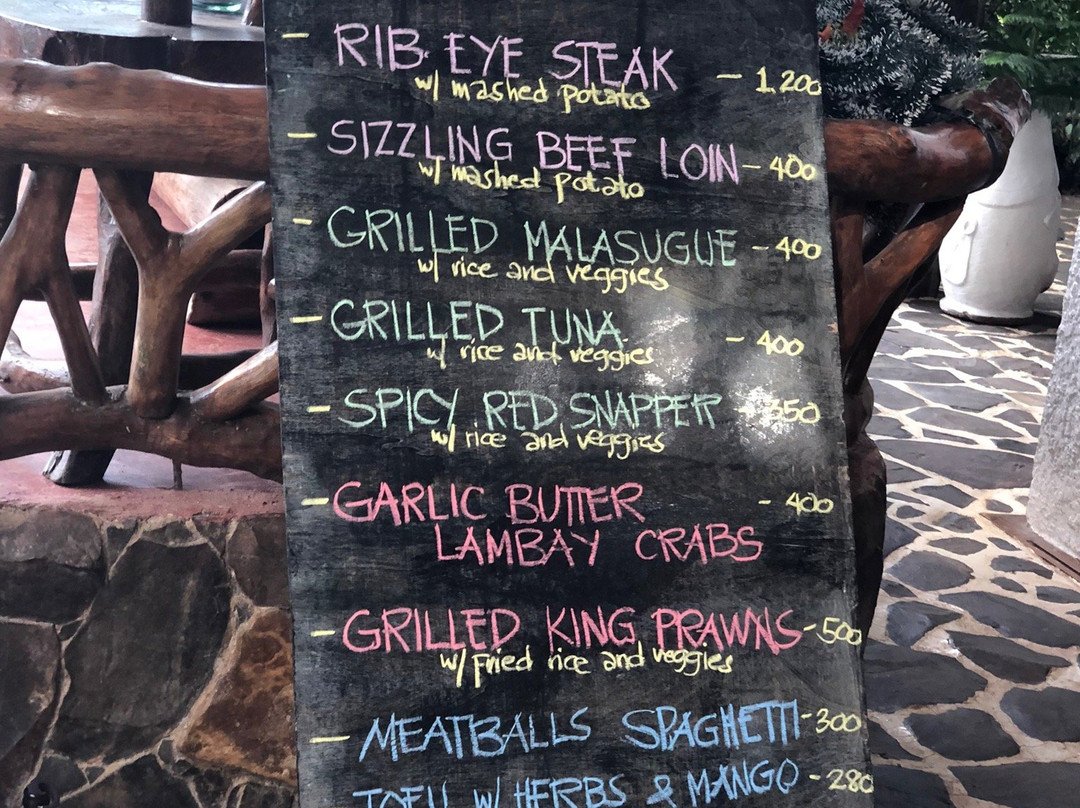 - RIB EYE STEAK - 1,200
w/ mashed potato
- SIZZLING BEEF LOIN - 400
w/ mashed potato
- GRILLED MALASUGUE - 400
w/ rice and veggies
- GRILLED TUNA - 400
w/ rice and veggies
- SPICY RED SNAPPER - 350
w/ rice and veggies
- GARLIC BUTTER - 400
LAMBAY CRABS
- GRILLED KING PRAWNS - 500
w/ Fried rice and veggies
- MEATBALLS SPAGHETTI - 300
TOFU W/ HERBS & MANGO - 280